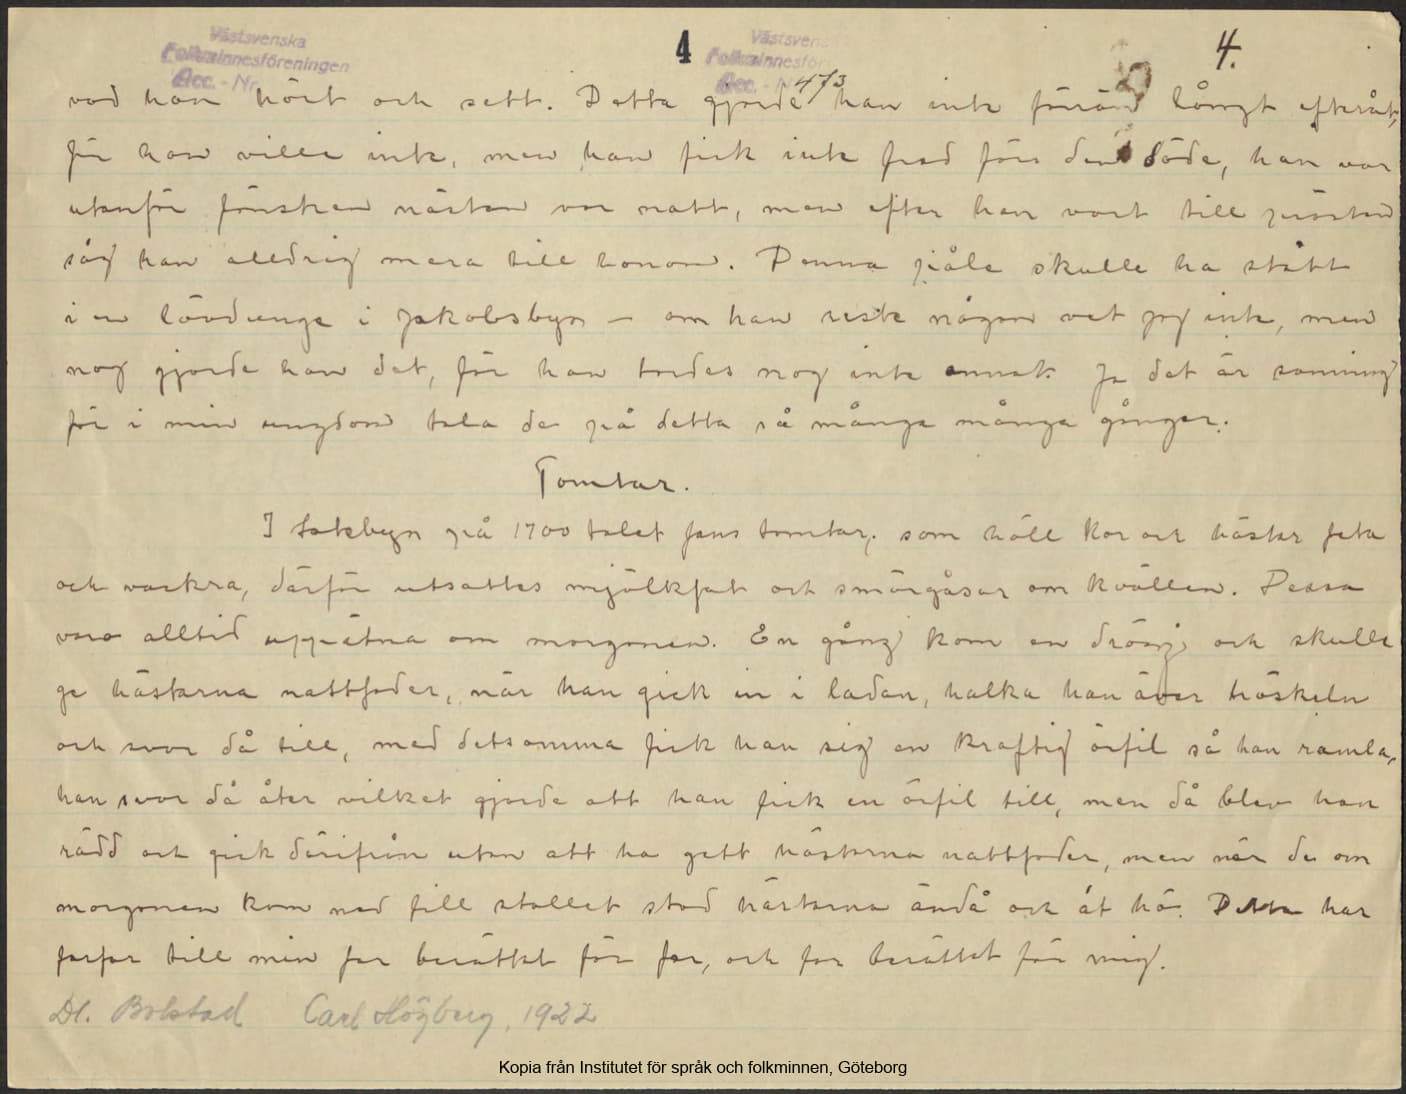 Västsvenska
Folkminnesföreningen
Acc. - Nr.
4
Västsvens
Folkminnesför
Acc. - N
473
4.
vad han hört och sett. Detta gjorde han inte förrän långt efteråt,
för han ville inte, men han fick inte fred förr den döde, han var
utanför fönstren nästan var natt, men efter han vart till prästen
såg han alldrig mera till honom. Denna påle skulle ha stått
i en lövdunge i Jakobsbyn – om han reste någon vet jag inte, men
nog gjorde han det, för han tordes nog inte annat. Ja det är sanning
för i min ungdom tala de på detta så många många gånger.
Tomtar.
I Lotsbyn på 1700 talet fans tomtar, som höll kor och hästar feta
och vackra, därför utsattes mjölkfat och smörgåsar om kvällen. Dessa
voro alltid uppätna om morgonen. En gång kom en dräng och skulle
ge hästarna nattfoder, när han gick in i ladan, halka han över tröskeln
och svor då till, med detsamma fick han sig en kraftig örfil så han ramla,
han svor då åter vilket gjorde att han fick en örfil till, men då blev han
rädd och gick därifrån utan att ha gett hästarna nattfoder, men när de om
morgonen kom ned till stallet stod hästarna ändå och åt hö. Detta har
farfar till min far berättat för far, och far berättat för mig.
Dl. Bolstad Carl Högberg, 1922
Kopia från Institutet för språk och folkminnen, Göteborg